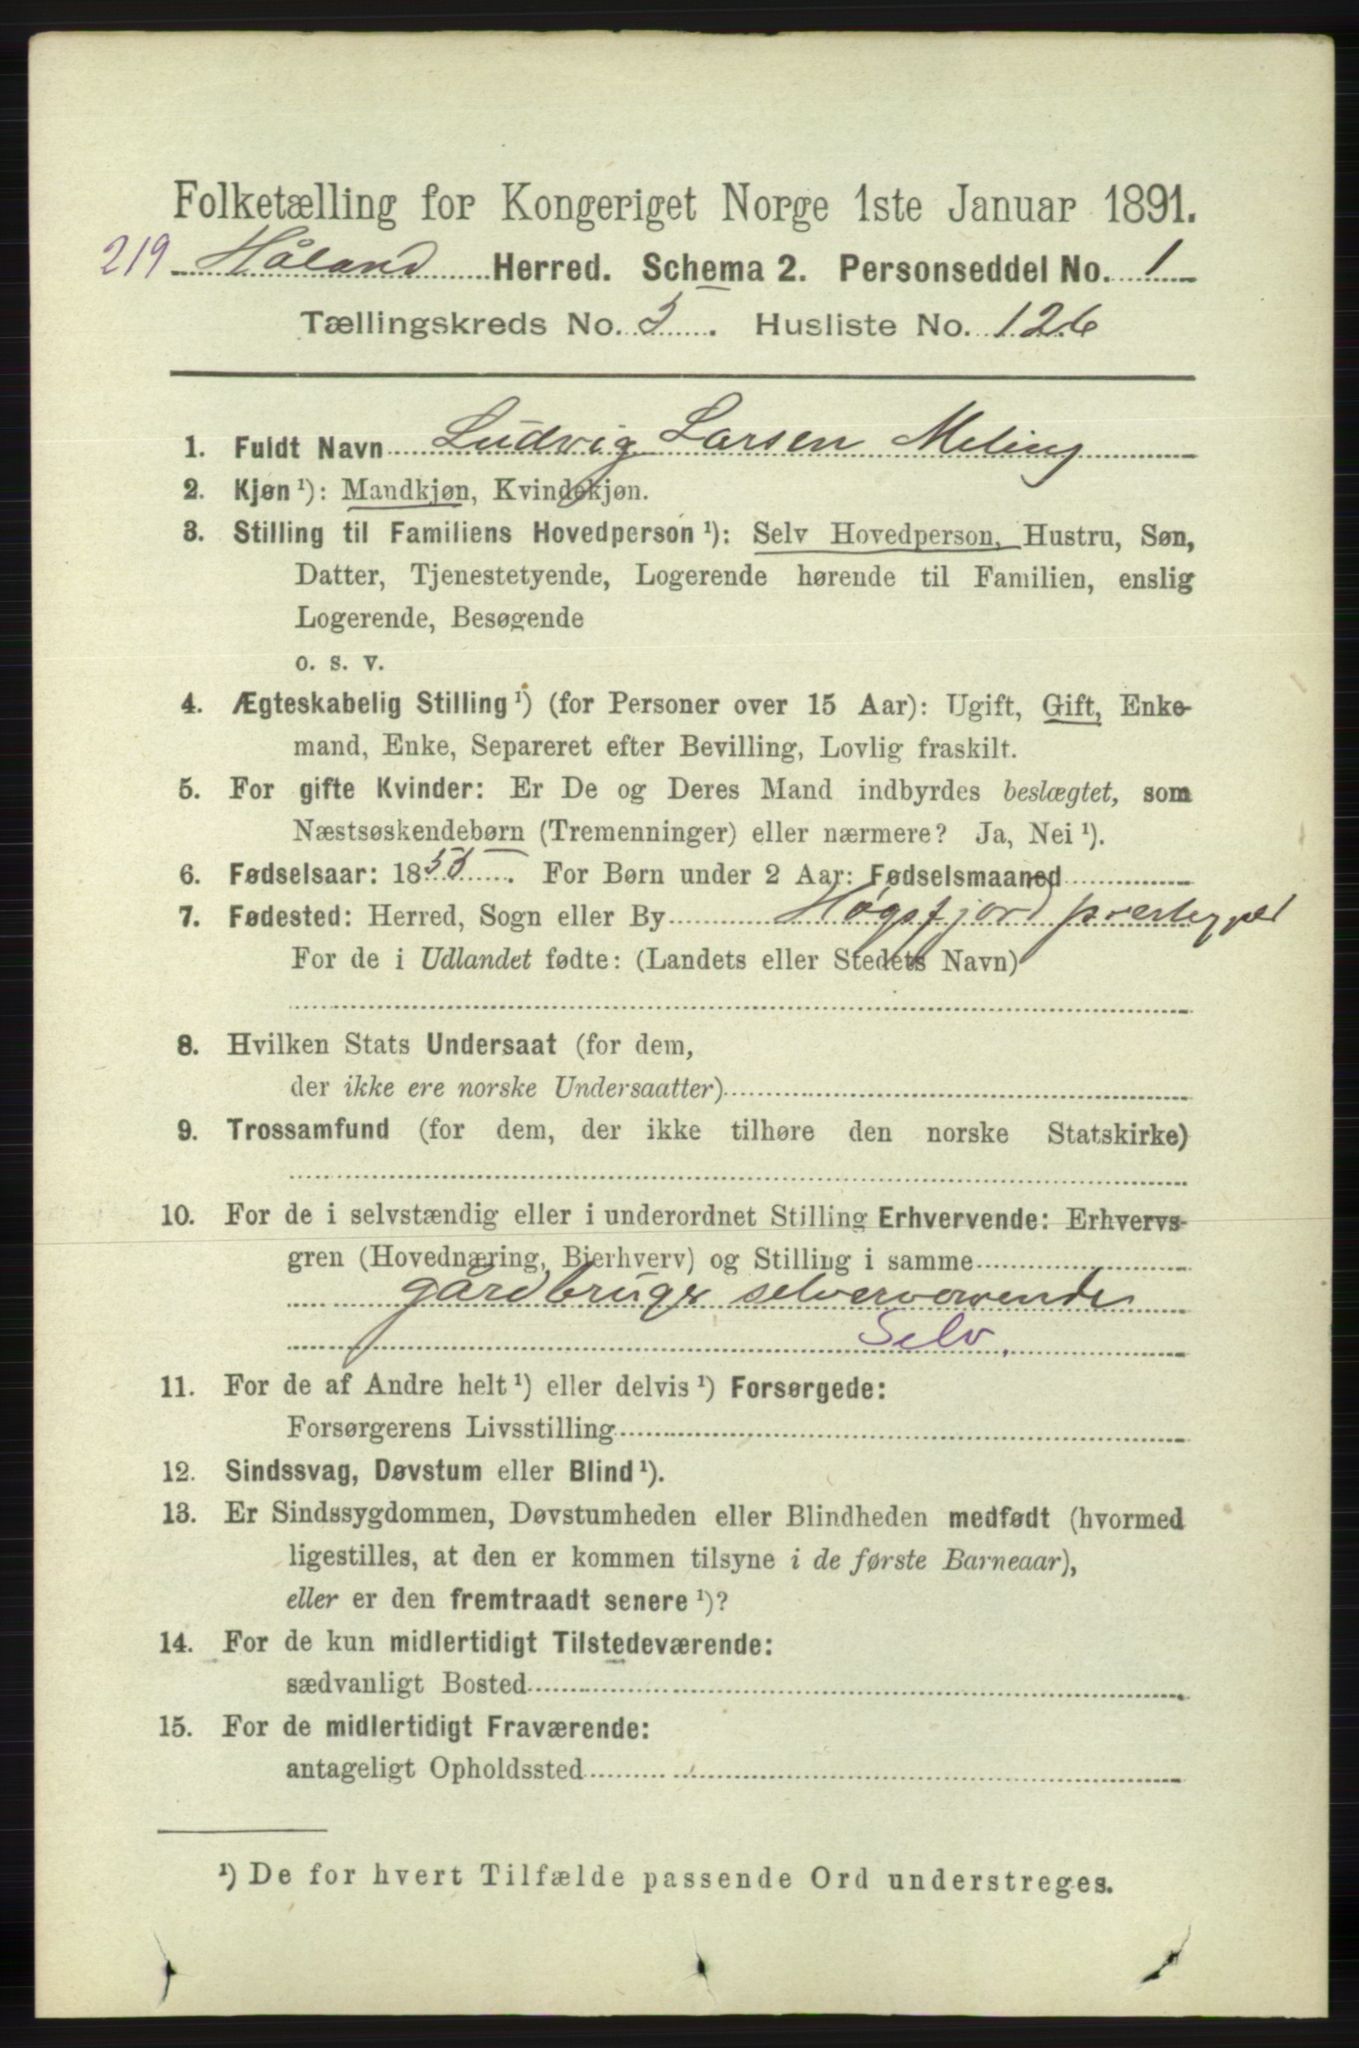 Folketælling for Kongeriget Norge 1ste Januar 1891.
219 Håland Herred. Schema 2. Personseddel No. 1
Tællingskreds No. 5. Husliste No. 126
1. Fuldt Navn Ludvig Larsen Meling
2. Kjøn¹): Mandkjøn, Kvindekjøn.
3. Stilling til Familiens Hovedperson¹): Selv Hovedperson, Hustru, Søn,
Datter, Tjenestetyende, Logerende hørende til Familien, enslig
Logerende, Besøgende
o. s. v.
4. Ægteskabelig Stilling¹) (for Personer over 15 Aar): Ugift, Gift, Enke-
mand, Enke, Separeret efter Bevilling, Lovlig fraskilt.
5. For gifte Kvinder: Er De og Deres Mand indbyrdes beslægtet, som
Næstsøskendebørn (Tremenninger) eller nærmere? Ja, Nei¹).
6. Fødselsaar: 1855. For Børn under 2 Aar: Fødselsmaaned
7. Fødested: Herred, Sogn eller By Høgsfjord
For de i Udlandet fødte: (Landets eller Stedets Navn)
8. Hvilken Stats Undersaat (for dem,
der ikke ere norske Undersaatter)
9. Trossamfund (for dem, der ikke tilhøre den norske Statskirke)
10. For de i selvstændig eller i underordnet Stilling Erhvervende: Erhvervs-
gren (Hovednæring, Bierhverv) og Stilling i samme
gårdbruger
Selv.
11. For de af Andre helt¹) eller delvis¹) Forsørgede:
Forsørgerens Livsstilling
12. Sindssvag, Døvstum eller Blind¹).
13. Er Sindssygdommen, Døvstumheden eller Blindheden medfødt (hvormed
ligestilles, at den er kommen tilsyne i de første Barneaar),
eller er den fremtraadt senere¹)?
14. For de kun midlertidigt Tilstedeværende:
sædvanligt Bosted
15. For de midlertidigt Fraværende:
antageligt Opholdssted
¹) De for hvert Tilfælde passende Ord understreges.